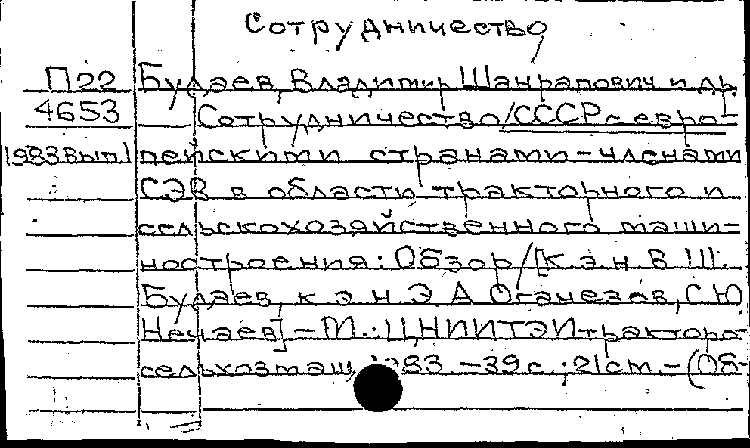 Сотрудничество
П22 Будаев, Владимир Шаирапович и др.
4653 Сотрудничество/СССР с евро-
1983 вып.1 пейскими странами-членами
СЭВ в области тракторного и
сельскохозяйственного маши-
ностроения: Обзор/[К.э.н. В.Ш.
Будаев, к.э.н. Э.А. Оганезов, С.Ю.
Нечаев] - М.: ЦНИИТЭИтракторо-
сельхозмаш, 1983. - 39 с.; 21 см. - (Об-